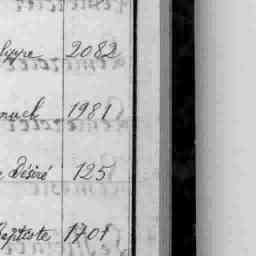 lippe 2082
nuel 1981
e Désiré 125
Baptiste 1701